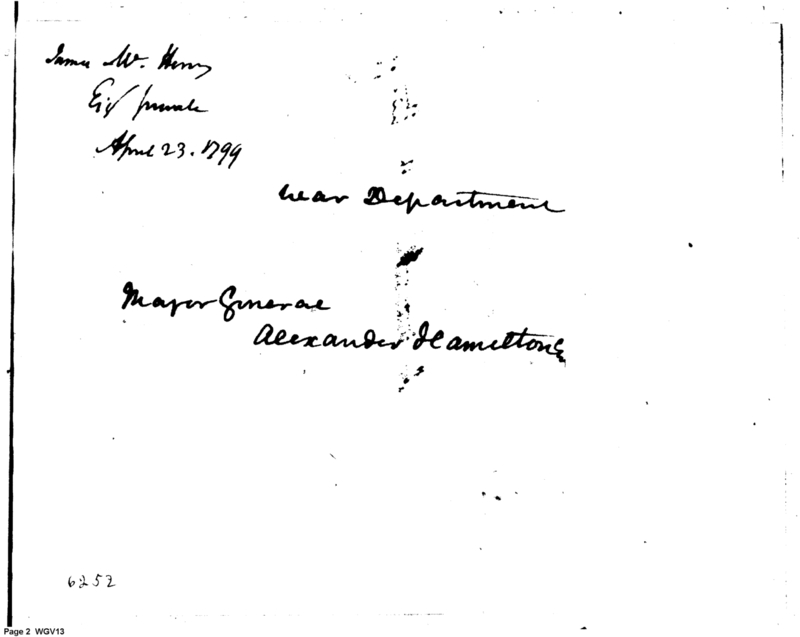 James McHenry
Esq private
April 23. 1799
War Department
Major General
Alexander Hamilton
6252
Page 2 WGV13